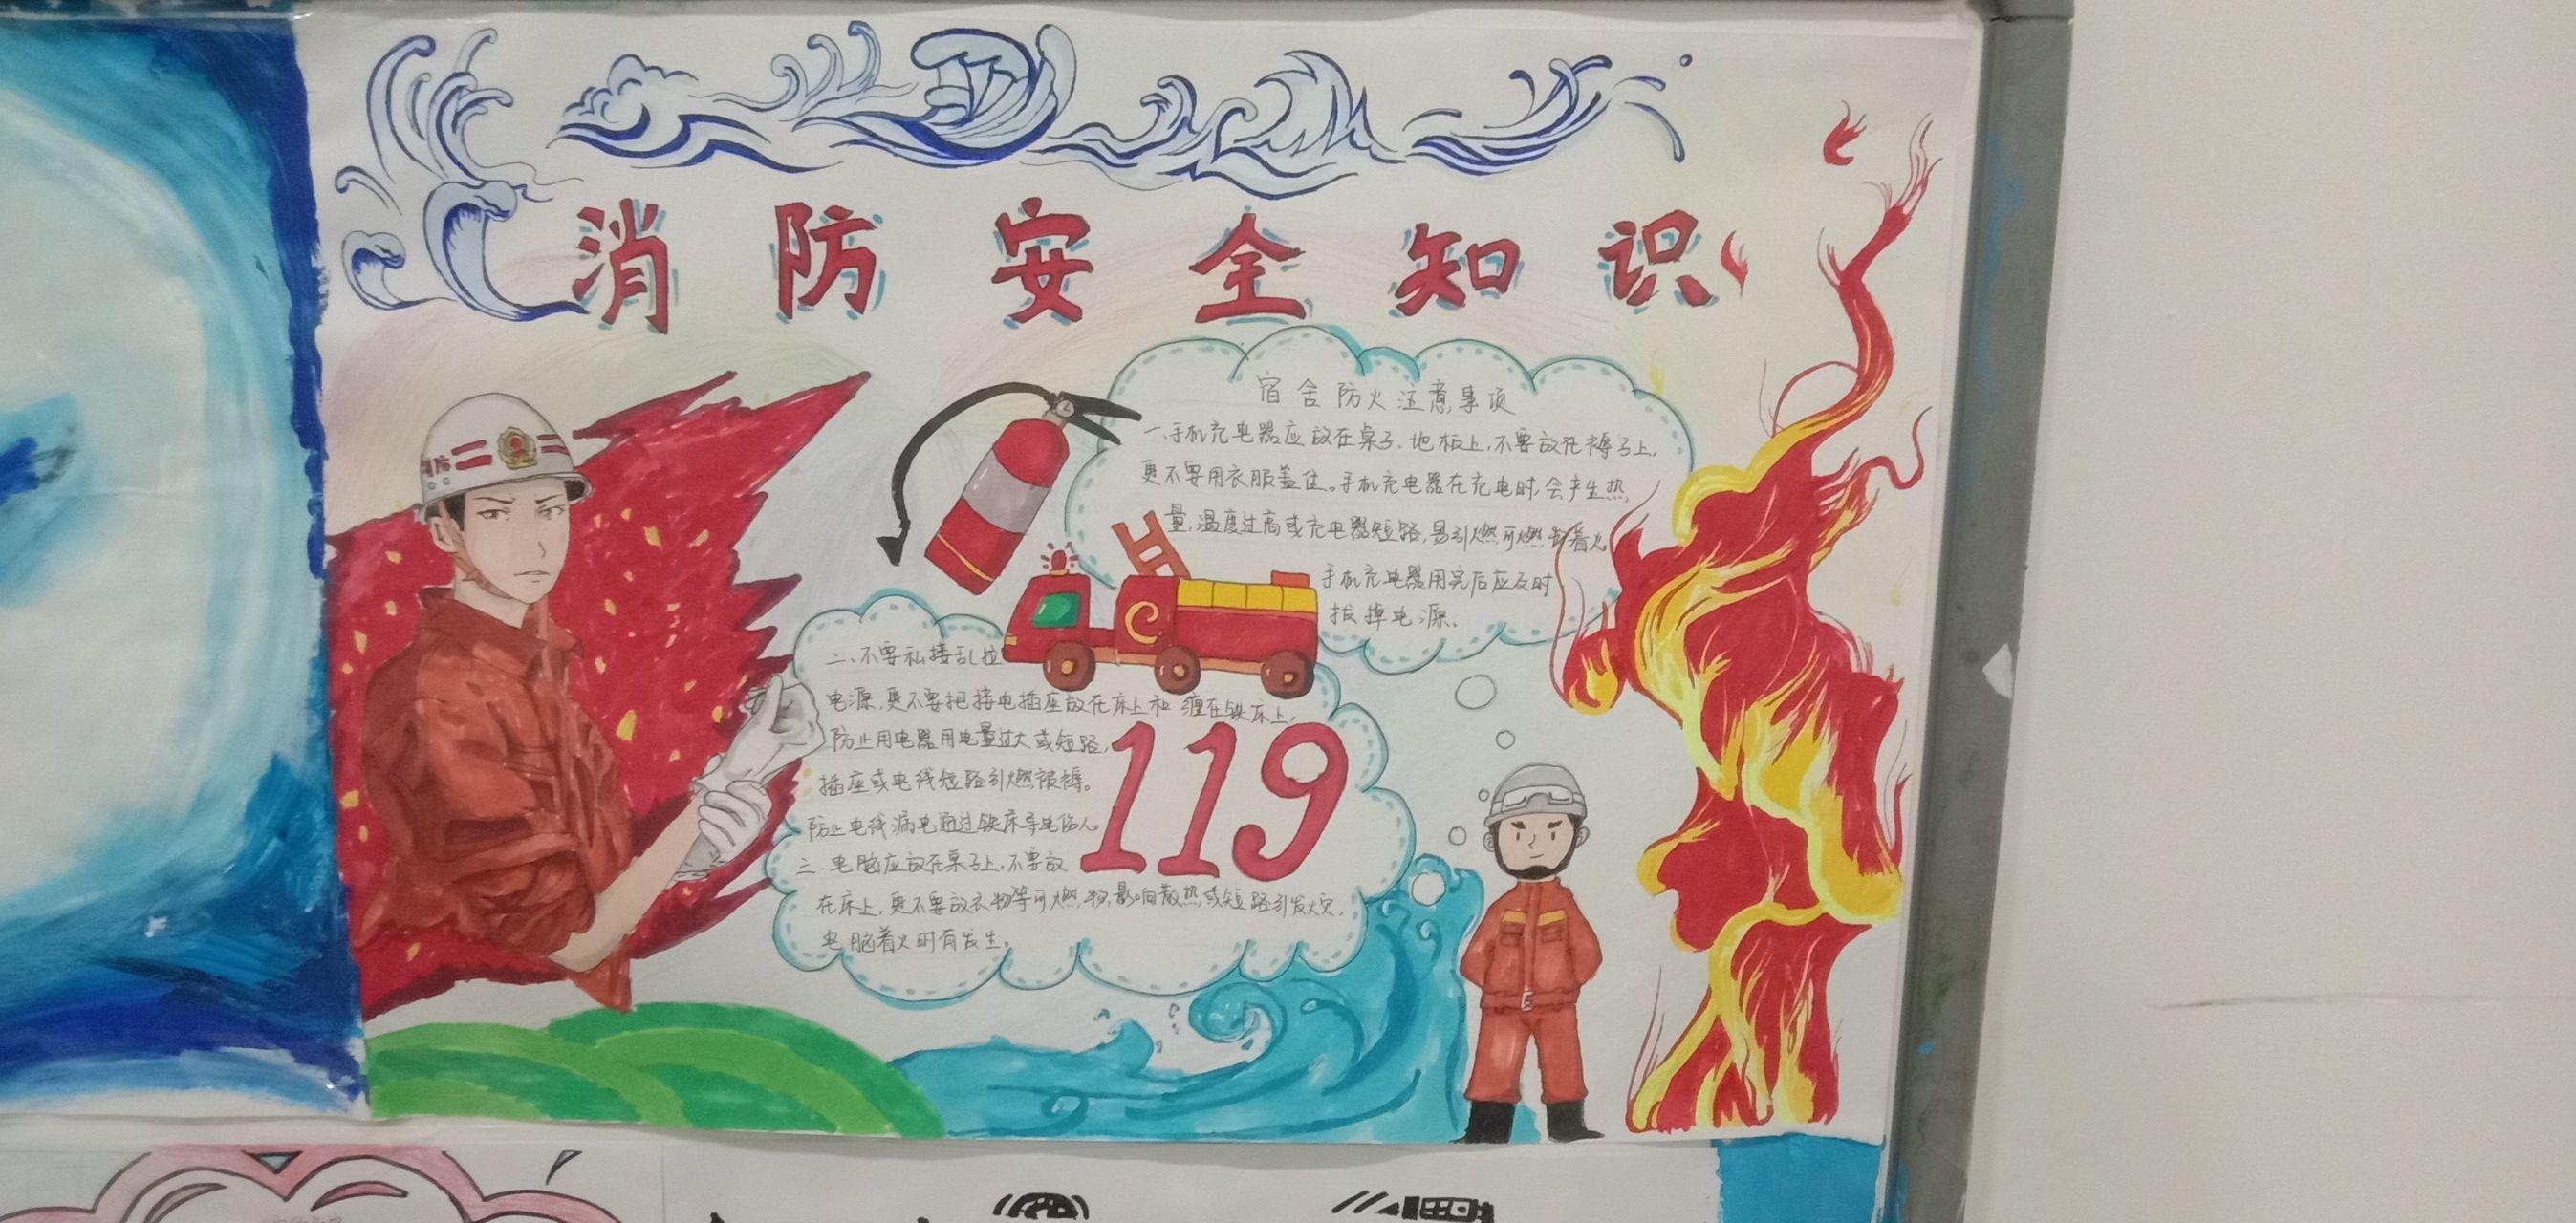 消防安全知识
消防
宿舍防火注意事项
一、手机充电器应放在桌子、地板上,不要放在褥子上,
更不要用衣服盖住。手机充电器在充电时,会产生热
量,温度过高或充电器短路,易引燃可燃物着火。
手机充电器用完后应及时
拔掉电源。
二、不要私接乱拉
电源,更不要把接电插座放在床上和缠在铁床上,
防止用电器用电量过大或短路,
插座或电线短路引燃被褥。
防止电线漏电通过铁床导电伤人
三、电脑应放在桌子上,不要放
在床上,更不要放衣物等可燃物,影响散热或短路引发火灾,
电脑着火时有发生。
119